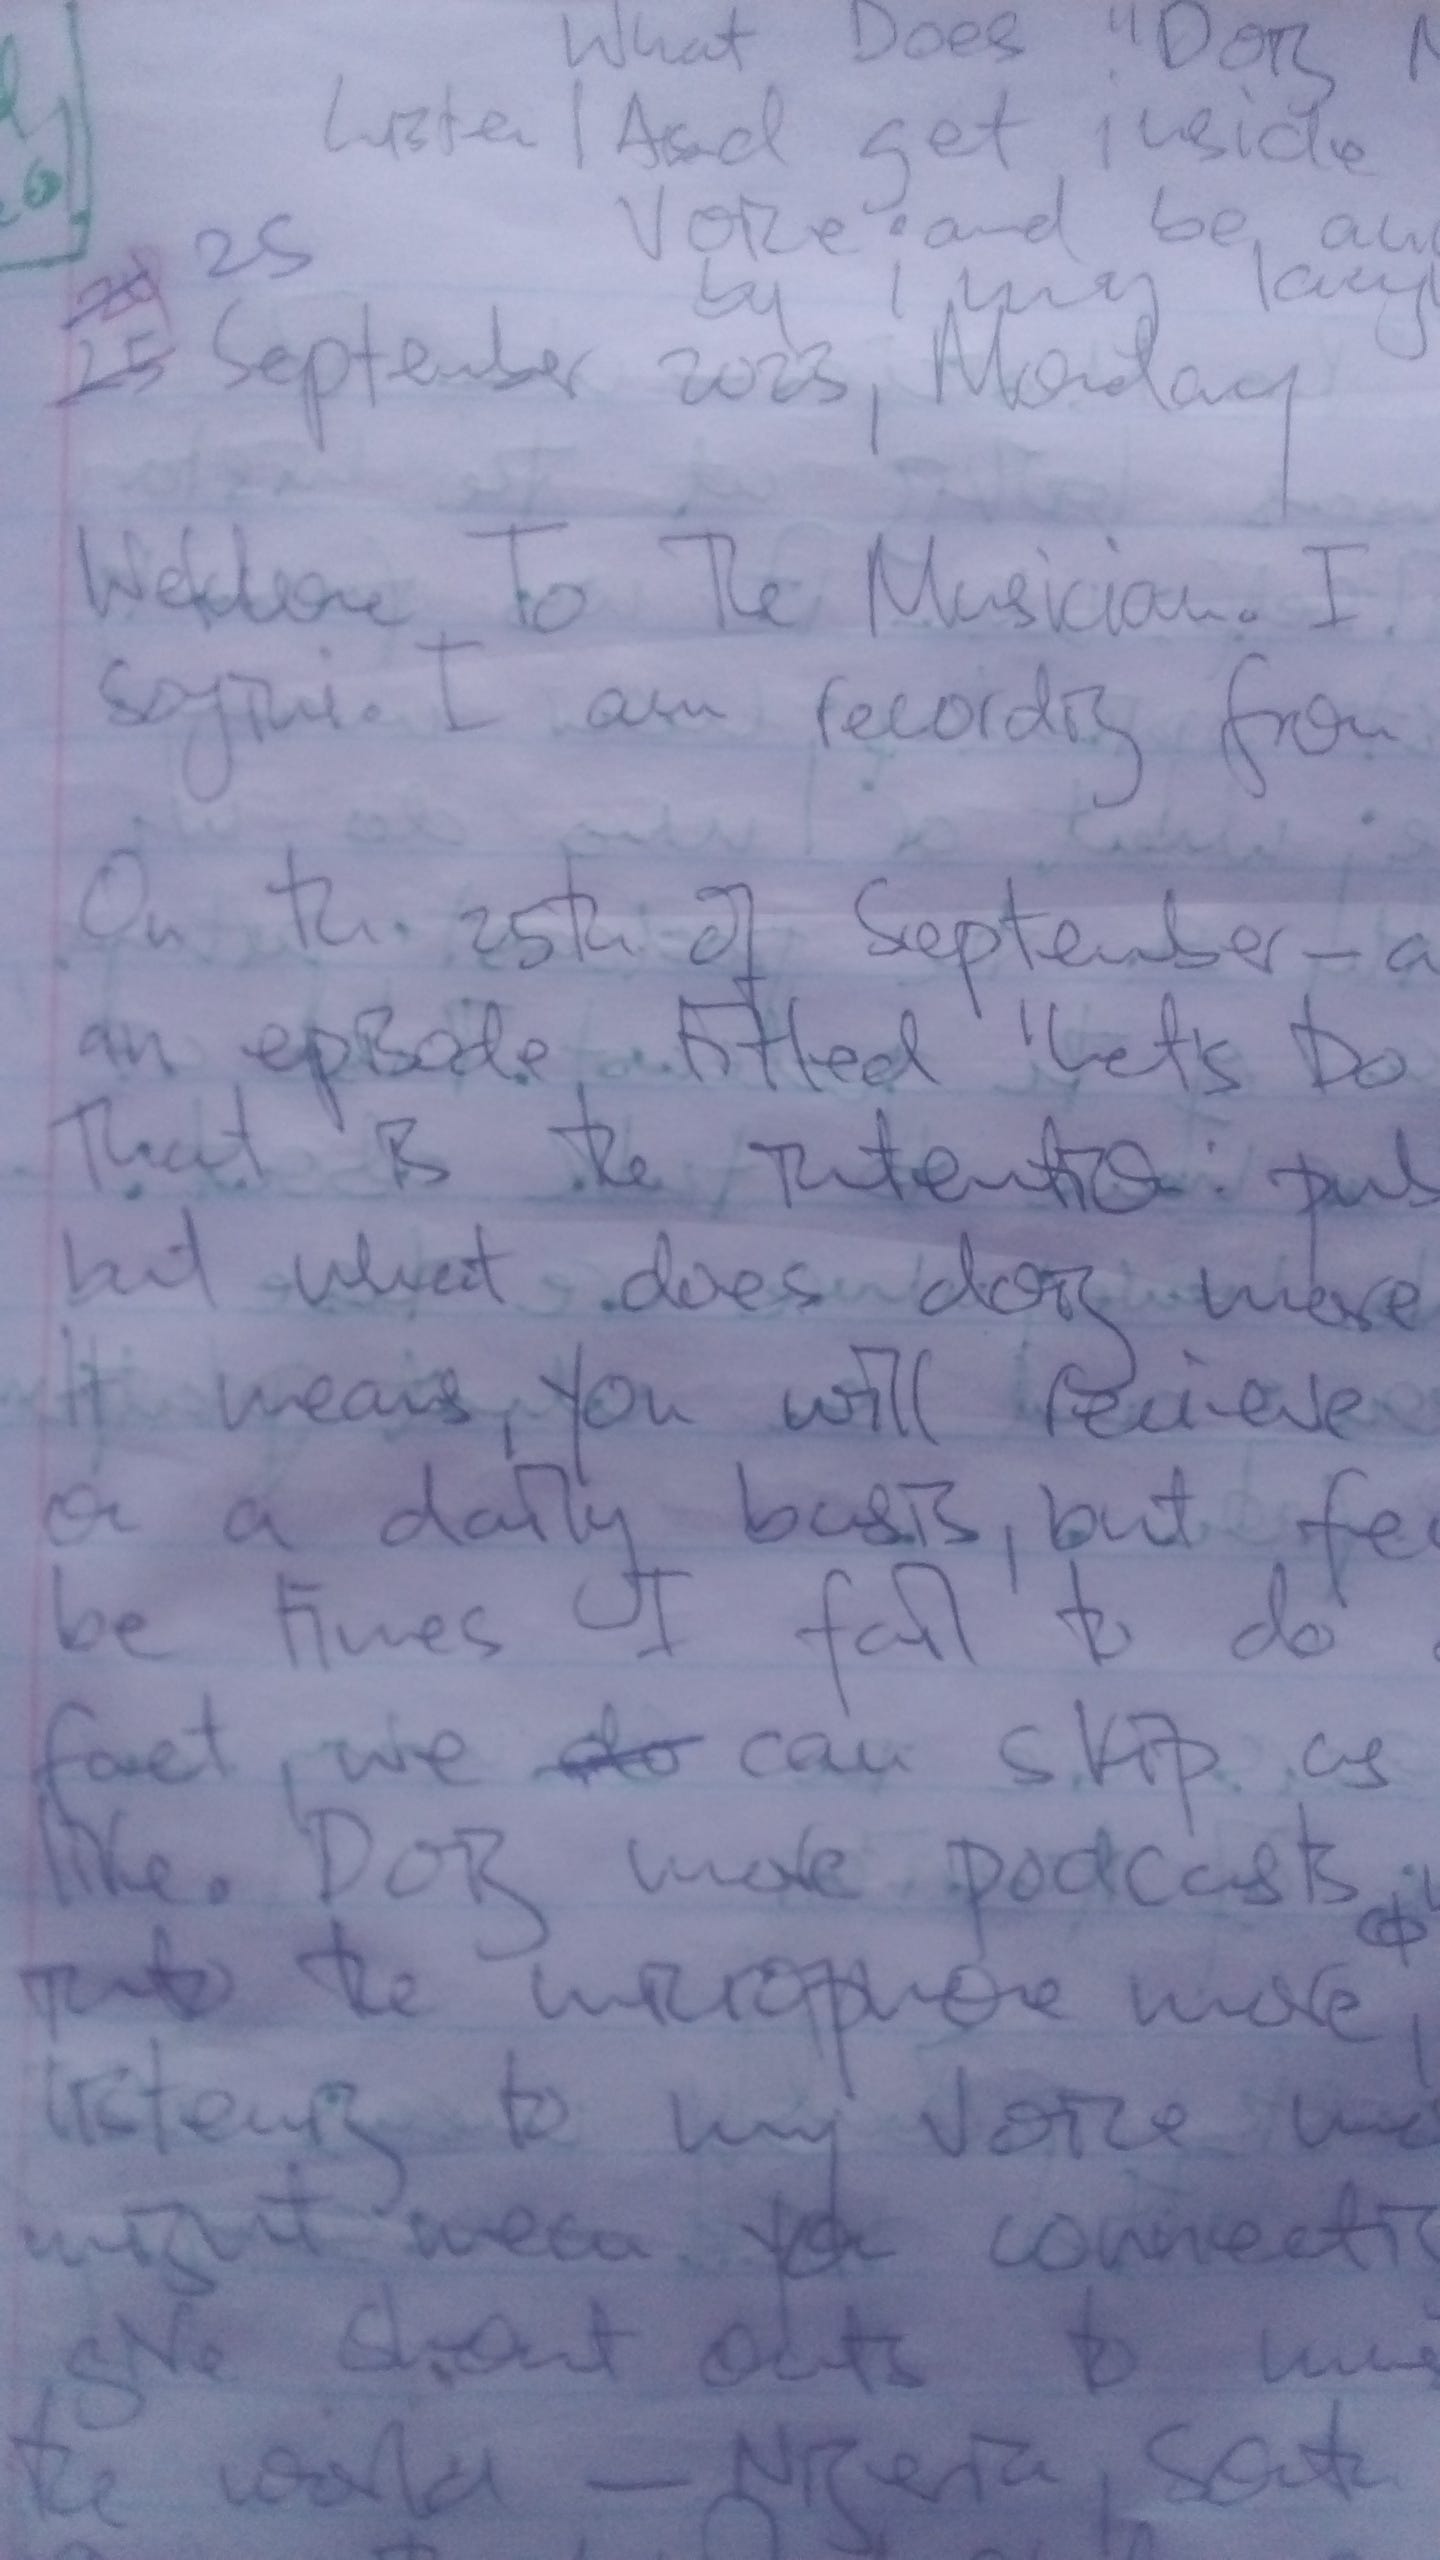 What Does "Doing
Listen / And get inside
Voice and be
by my
25
25 September 2023, Monday
Welcome To The Musician. I
I am recording from
On the 25th of September -
an episode titled "Let's Do
That is the intention:
but what does doing more
It means, you will recieve
on a daily basis, but
be times I fail to do
fact, we do can skip as
like. Doing more podcasts
into the microphone more,
listening to my voice
might mean you
give shout outs to
the world - Nigeria, South